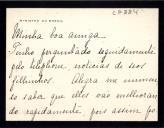 MINISTRO DO BRASIL
Minha boa amiga.
Tenho perguntado seguidamente
pelo telephone noticias de seus
filhinhos. Alegra me immenso
o saber que elles vão melhorando
rapidamente, pois assim